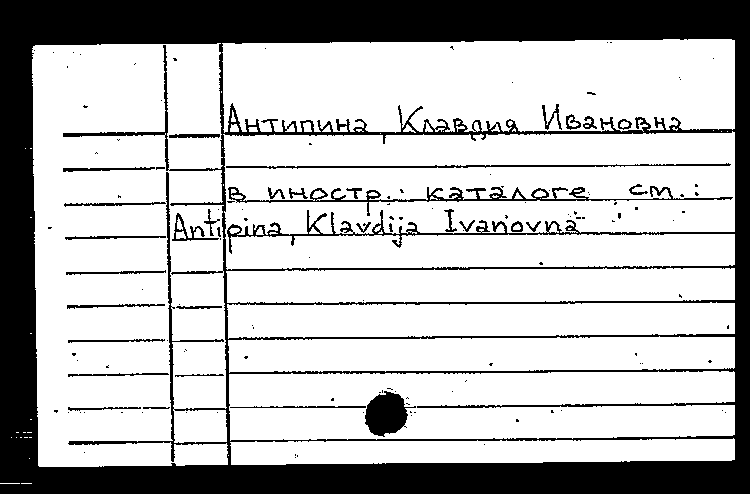 Антипина, Клавдия Ивановна
в иностр.: каталоге см.:
Antipina, Klavdija Ivanovna